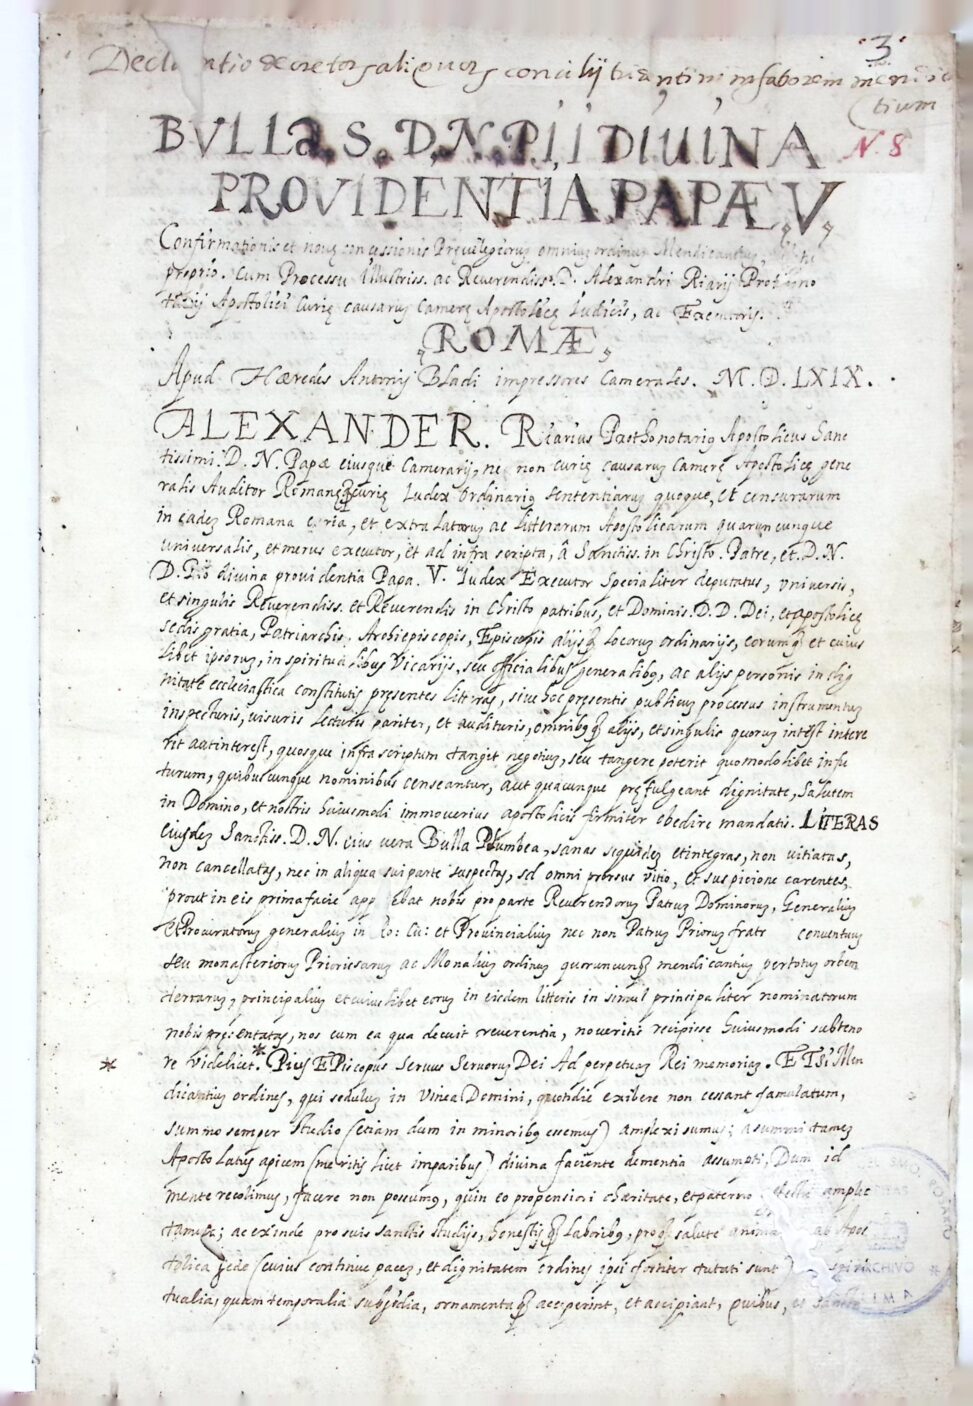 3
Declaratio decretor aliquor concilij tridentini in faborem mendica
tium
BVLLa. S. D. N. PII DIUINA
N. 8
PROVIDENTIA PAPÆ V,
Confirmationis et nouę concessionis Preuilegiorũ omniũ ordinum Mendicantiũ,
proprio. Cum Processu Illustriss. ac Reuerendiss. D. Alexandri Riarij Prothono
tarij Apostolici Curię causarũ Camerę Apostolicę Iudicis, ac Executoris.
ROMÆ,
Apud Hæredes Antonij Bladi impressores Camerales. M. D. LXIX.
ALEXANDER. Riarius Prothonotariꝰ Apostolicus Sanc
tissimi. D. N. Papæ eiusque Camerarij, nec non curię causarũ Camerę Apostolicę gene
ralis Auditor Romanęq curię Iudex ordinariꝰ sententiarũ quoque, et censurarum
in eadẽ Romana curia, et extra latarũ ac litterarum Apostolicarum quarum cunque
uniuersalis, et merus executor, et ad infra scripta, â Sanctiss. in Christo. Patre, et. D. N.
D. Pio diuina prouidentia Papa. V. Iudex Executor Specialiter deputatus, vniuersis,
et singulis Reuerendiss. et Reuerendis in Christo patribus, et Dominis. D. D. Dei, et apostolicę
sedis gratia, Patriarchis, Archiepiscopis, Episcopis alijsq locorũ ordinarijs, eorumq et cuius
libet ipsorũ, in spiritualibus Vicarijs, seu officialibus generalibꝰ, ac alijs personis in dig
nitate ecclesiastica constitutis presentes litteras, siue hoc presentis publicũ processus instrumentũ
inspecturis, uisuris lecturis pariter, et audituris, omnibꝰq alijs, et singulis quorũ interest intere
rit aut interest, quosque infra scriptum tangit negotiũ, seu tangere poterit quomodolibet in fu
turum, quibuscunque nominibus censeantur, aut quacunque pręfulgeant dignitate, Salutem
in Domino, et nostris huiusmodi immouerius apostolicis firmiter obedire mandatis. LITERAS
Eiusdẽ Sanctiss. D. N. eius uera Bulla Plumbea, sanas siquidẽ et integras, non uitiatas,
non cancellatas, nec in aliqua sui parte suspectas, sed omni prorsus uitio, et suspicione carentes,
prout in eis prima facie app ebat nobis pro parte Reuerendorũ Patrũ Dominorũ, Generaliũ
et Procuratorũ generaliũ in Ro: Cu: et Prouincialiũ nec non Patrũ Priorũ fratr conuentuũ
seu monasteriorũ Priorissarũ ac Monaliũ ordinũ quoruncunq mendicantiũ per totũ orbem
terrarũ, principaliũ et cuiuslibet eorũ in eisdem litteris in simul principaliter nominatorum
nobis pręsentatas, nos cum ea qua decuit reuerentia, noueritis recipisse huiusmodi sub teno
* re videlicet.* Pius EPiscopus Seruus Seruorũ Dei Ad perpetuam Rei memoriam. ETSi Men
dicantiũ ordines, qui sedulũ in Vinea Domini, quotidie exibere non cessant famulatum,
summo semper studio (etiam dum in minoribꝰ essemus) amplexi sumus; a summi tamẽ
Apostolatus apicem (meritis licet imparibus) diuina faciente clementia assumpti, Dum id
mente recolimus, facere non possumꝰ, quin eo propensiori chæritate, et paterno affectu amplec
tamur; ac exinde pro suis sanctis studijs, honestisq laboribꝰ, proq salute anima ab Apos
tolica sede (cuius continue pacẽ, et dignitatem ordines ipsi fortiter tutati sunt) spiri
tualia, quam temporalia subsidia, ornamentaq acceperint, et accipiant, quibus,
ARCHIVO
LIMA